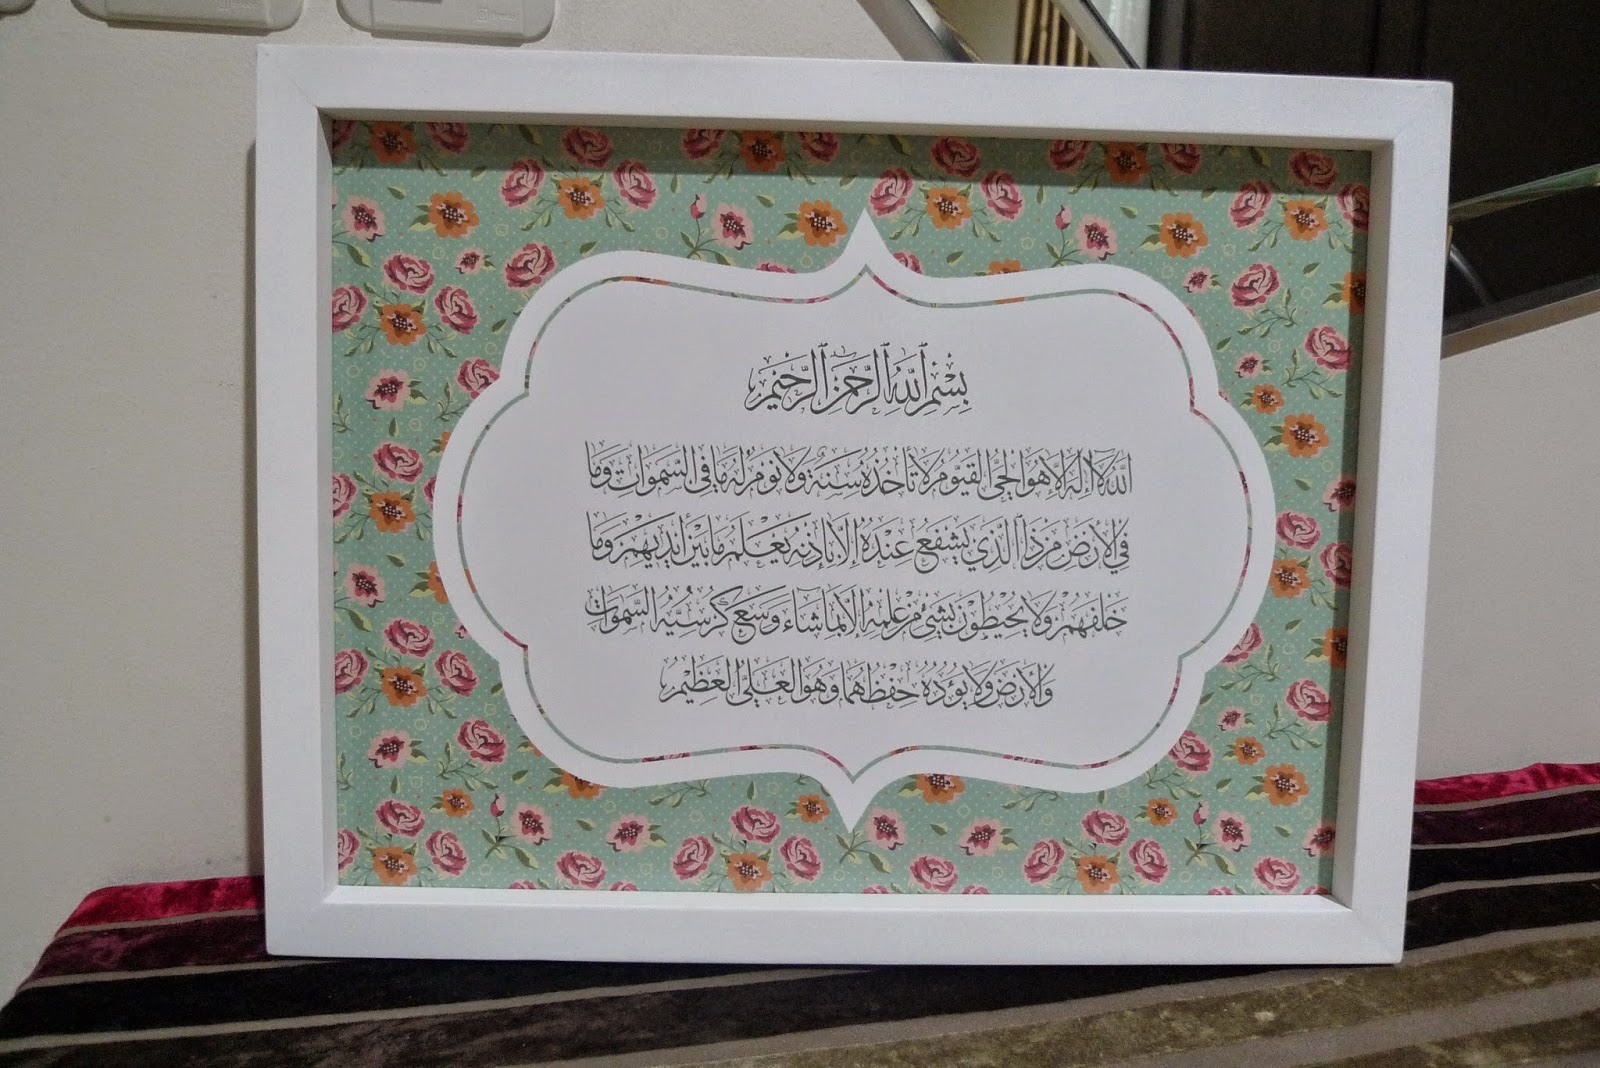 بِسْمِ ٱللَّهِ ٱلرَّحْمَٰنِ ٱلرَّحِيمِ
اللَّهُ لَا إِلَهَ إِلَّا هُوَ الْحَيُّ الْقَيُّومُ لَا تَأْخُذُهُ سِنَةٌ وَلَا نَوْمٌ لَهُ مَا فِي السَّمَوَاتِ وَمَا
فِي الْأَرْضِ مَنْ ذَا الَّذِي يَشْفَعُ عِنْدَهُ إِلَّا بِإِذْنِهِ يَعْلَمُ مَا بَيْنَ أَيْدِيهِمْ وَمَا
خَلْفَهُمْ وَلَا يُحِيطُونَ بِشَيْءٍ مِنْ عِلْمِهِ إِلَّا بِمَا شَاءَ وَسِعَ كُرْسِيُّهُ السَّمَوَاتِ
وَالْأَرْضَ وَلَا يَئُودُهُ حِفْظُهُمَا وَهُوَ الْعَلِيُّ الْعَظِيمُ